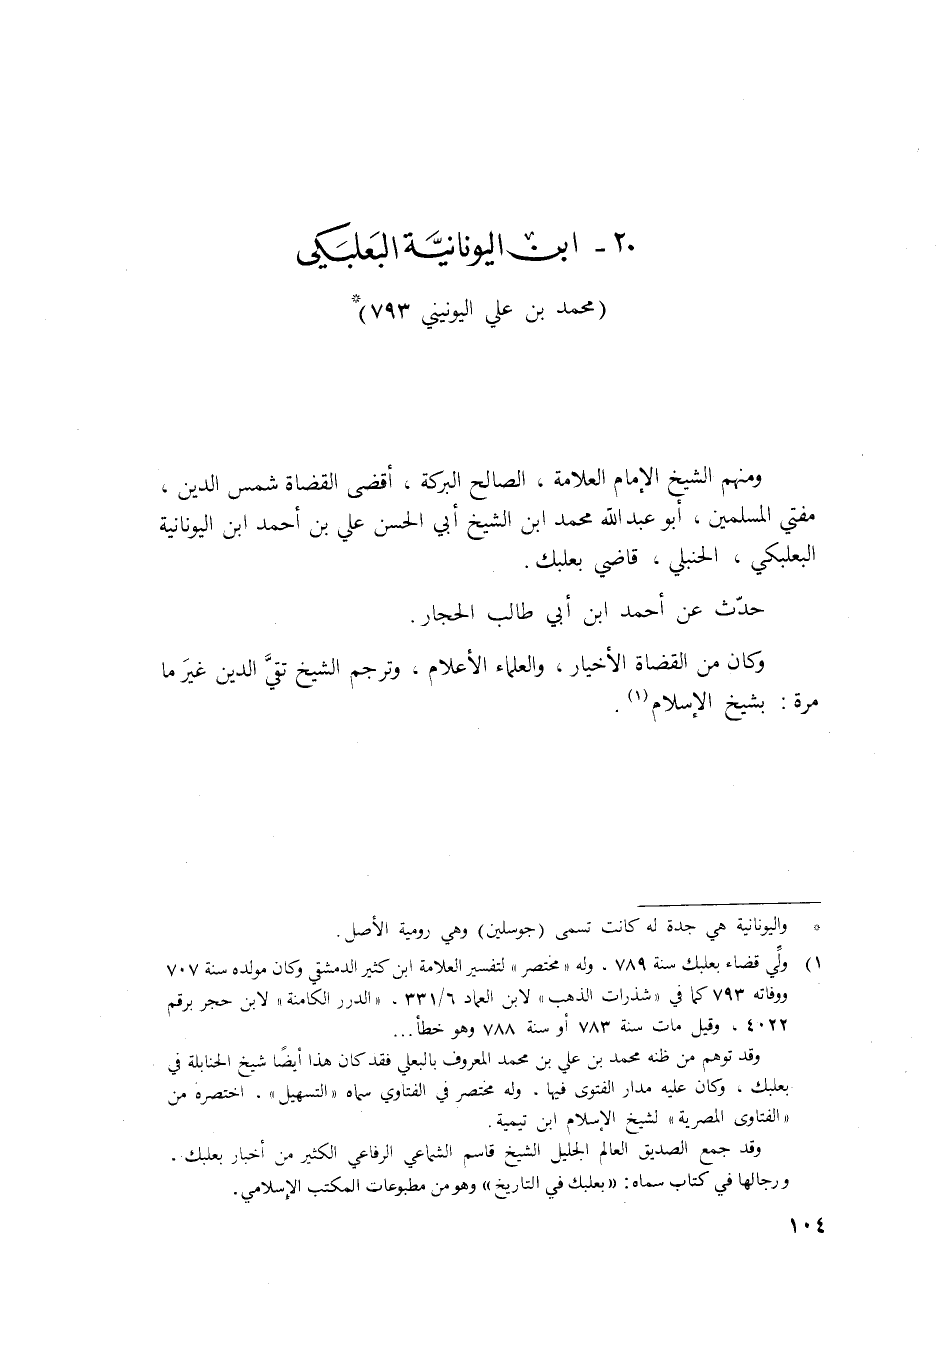 ٢٠ - ابن اليونانيَّة البَعلبَكي
(محمد بن علي اليونيني ٧٩٣)*
ومنهم الشيخ الإمام العلامة ، الصالح البركة ، أقضى القضاة شمس الدين ،
مفتي المسلمين ، أبو عبد الله محمد ابن الشيخ أبي الحسن علي بن أحمد ابن اليونانية
البعلبكي ، الحنبلي ، قاضي بعلبك .
حدّث عن أحمد ابن أبي طالب الحجار .
وكان من القضاة الأخيار ، والعلماء الأعلام ، وترجم الشيخ تقيَّ الدين غيرَ ما
مرة : بشيخ الإسلام(١) .
* واليونانية هي جدة له كانت تسمى (جوسلين) وهي رومية الأصل .
١) ولّي قضاء بعلبك سنة ٧٨٩ . وله «مختصر» لتفسير العلامة ابن كثير الدمشقي وكان مولده سنة ٧٠٧
ووفاته ٧٩٣ كما في «شذرات الذهب» لابن العماد ٣٣١/٦ . «الدرر الكامنة» لابن حجر برقم
٤٠٢٢ ، وقيل مات سنة ٧٨٣ أو سنة ٧٨٨ وهو خطأ...
وقد توهم من ظنه محمد بن علي بن محمد المعروف بالبعلي فقد كان هذا أيضًا شيخ الحنابلة في
بعلبك ، وكان عليه مدار الفتوى فيها . وله مختصر في الفتاوي سماه «التسهيل» . اختصره من
«الفتاوى المصرية» لشيخ الإسلام ابن تيمية .
وقد جمع الصديق العالم الجليل الشيخ قاسم الشماعي الرفاعي الكثير من أخبار بعلبك .
ورجالها في كتاب سماه: «بعلبك في التاريخ» وهو من مطبوعات المكتب الإسلامي .
١٠٤